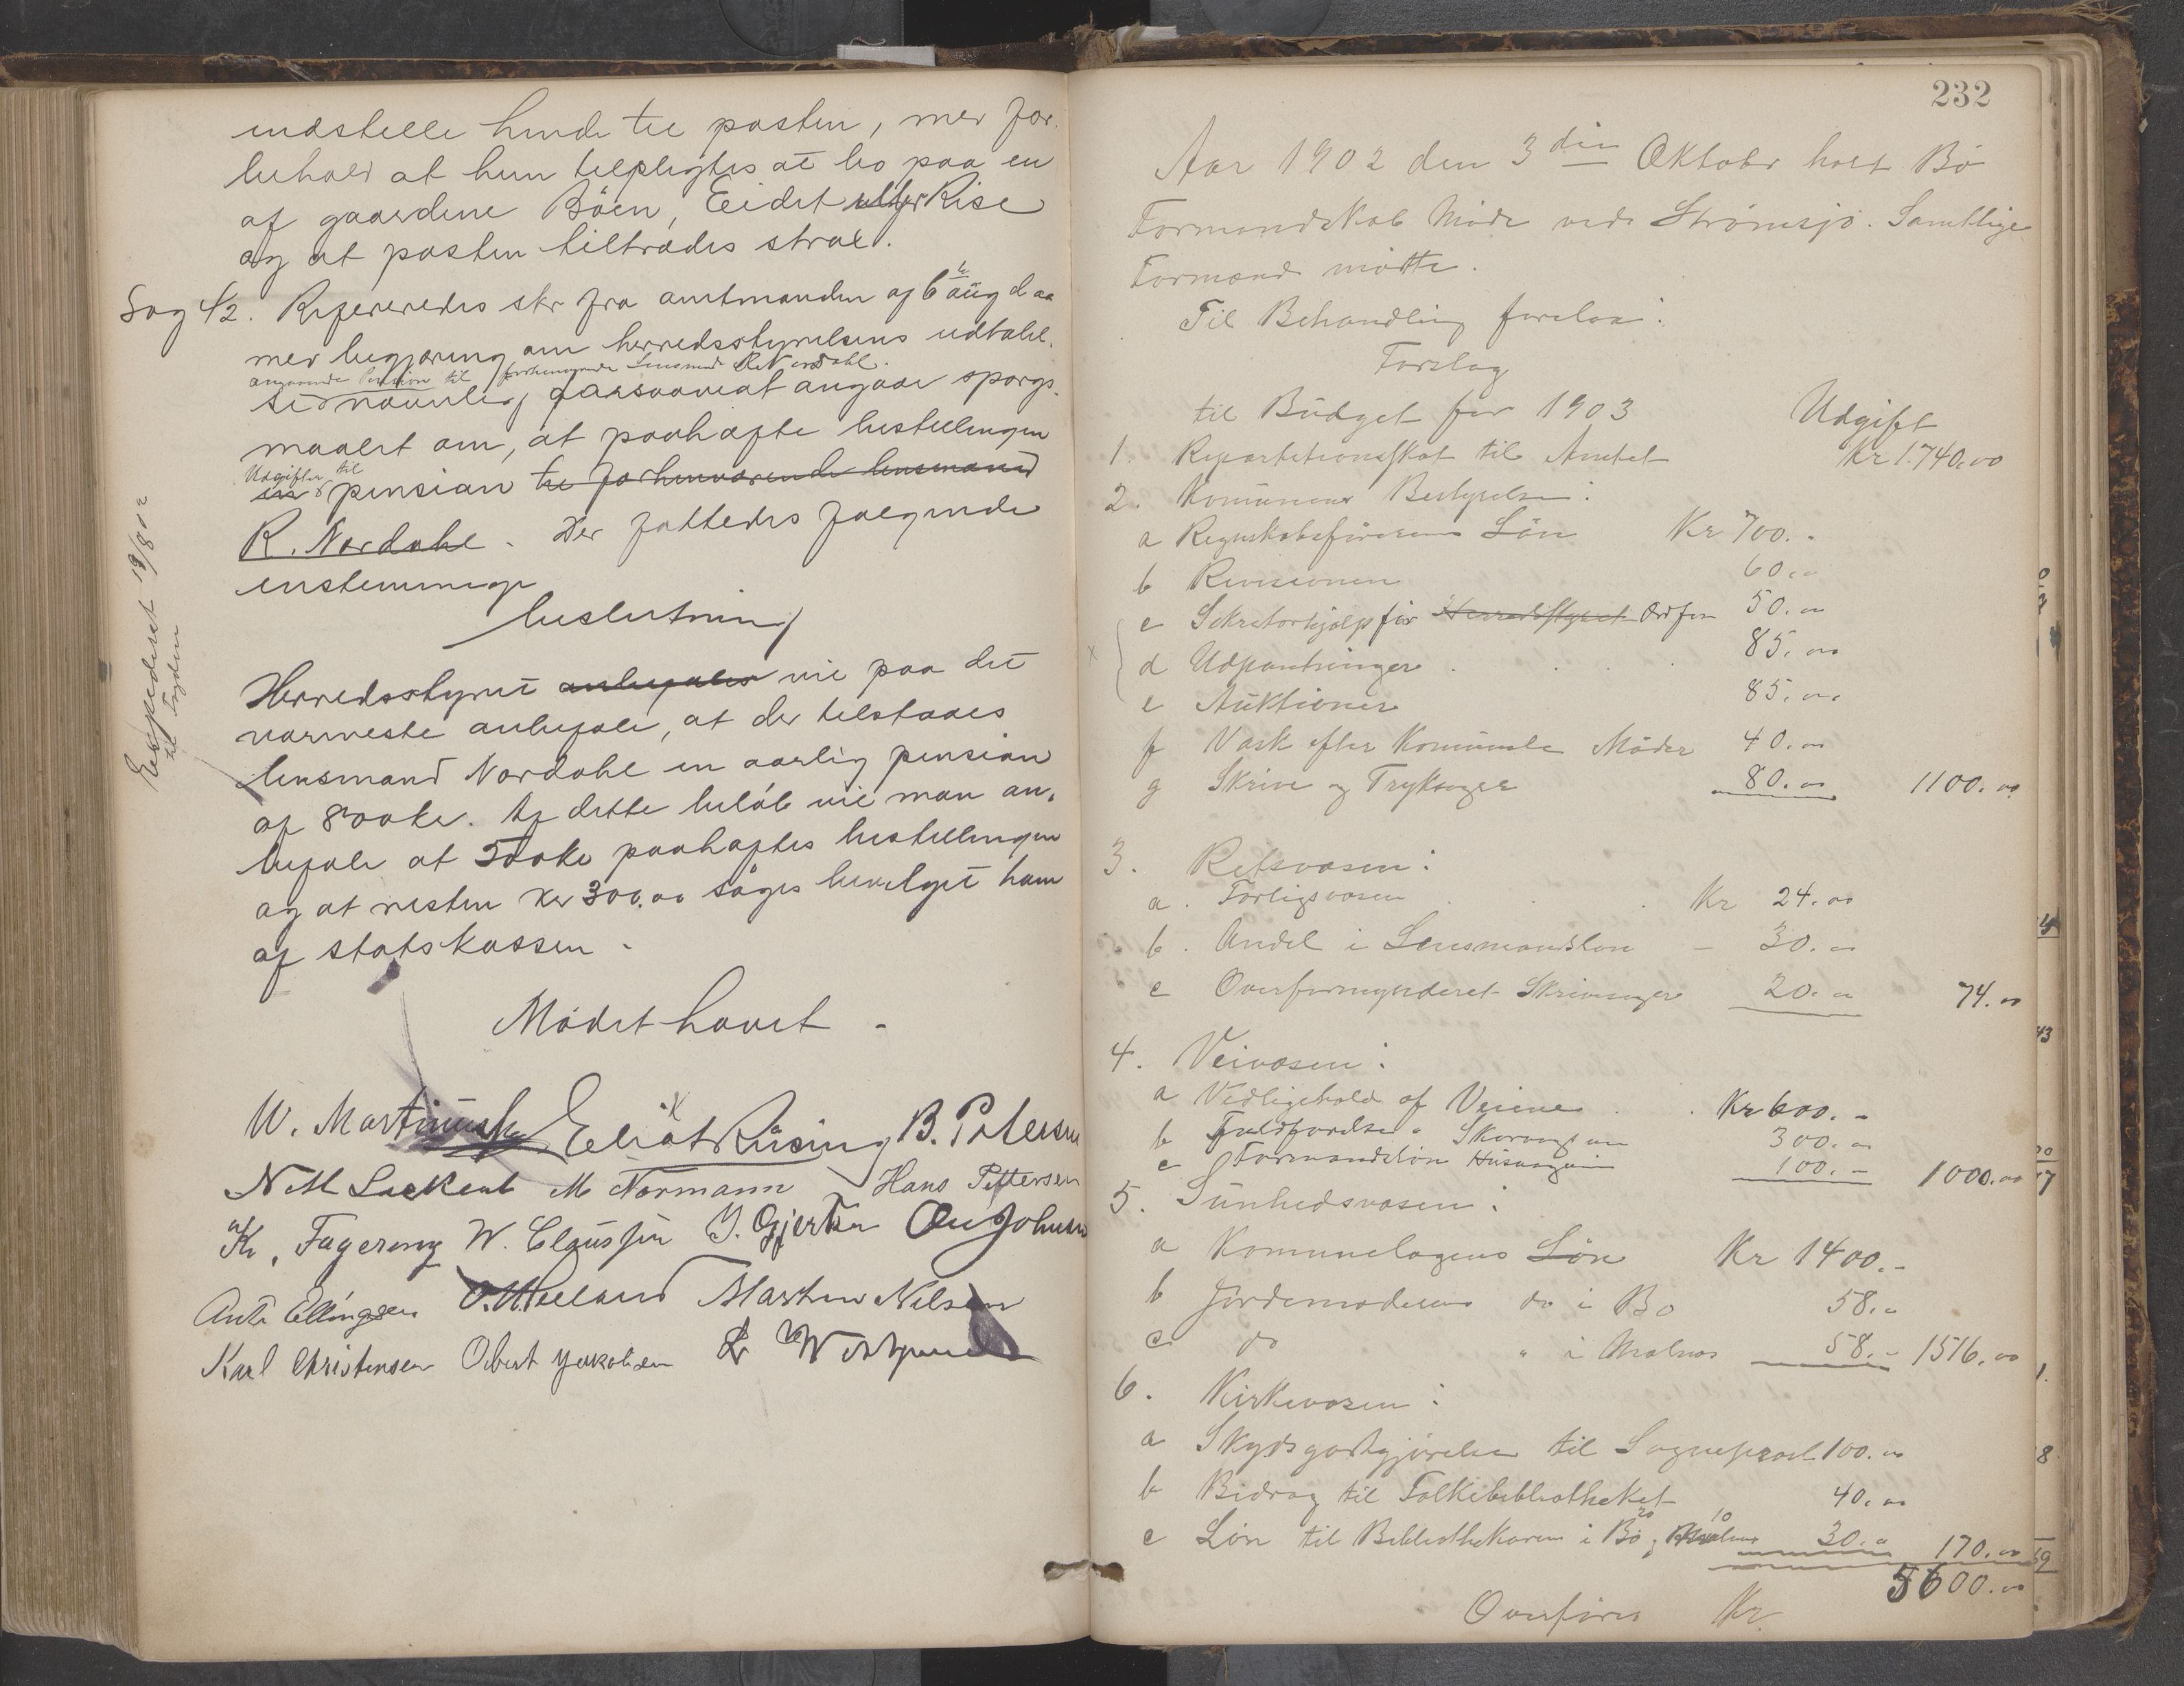 indstille hende til posten, med for-
behold at hun tilpligtes at bo paa en
af gaardene Böen, Eidet eller Rise
og at posten tiltrædes strax.
Sag 42. Refereredes skr fra amtmanden af 6te aug d aa
med begjæring om herredsstyrelsens udtalel.
angaaende Pension til forhenværende Lensmand R. Nordahl.
se navnlig forsaavidt angaar spörgs-
maalet om, at paahæfte bestillingen
Udgifter til
en pension til forhenværende lensmand
R. Nordahl. Der fattedes fölgende
enstemmige
beslutning
Herredsstyret anbefaler vil paa det
varmeste anbefale, at der tilstaaes
lensmand Nordahl en aarlig pension
af 800 kr. Af dette belöb vil man an-
befale at 500 kr paahæftes bestillingen
og at resten kr 300,00 söges bevilget ham
af statskassen.
Expederet 19/8 02
til Fogden
Mödet hævet.
W. Martinussen Eliot Rüsing B. Petersen
N M Lockert M Normann Hans Pettersen
K. Fagereng W. Claussen J. Gjertsen Ole Johnsen
Ante Ellingsen Martin Nilsen
Karl Christensen Obert Jakobsen
232
Aar 1902 den 3die Oktober holdt Bö
Formandskab Möde ved Strömsjö. Samtlige
Formænd mödte.
Til Behandling forelaa:
Forslag
til Budget for 1903 Udgift
1. Repartitionsskat til Amtet Kr 1740.00
2. Komunens Bestyrelse:
a Regnskabsförerens Lön Kr 700.-
b Revisionen 60.00
c Sekretærhjælp for Herredsstyret Ordför 50.00
d Udpantninger 85.00
e Auktioner 85.00
f Vask efter Komunale Möder 40.00
g Skrive og Tryksager 80.00 1100.00
3. Retsvæsen:
a. Forligsvæsen Kr 24.00
b. Andel i Lensmandslön - 30.00
c Overformynderiet Skrivesager 20.00 74.00
4. Veivæsen:
a Vedligehold af Veiene Kr 600.-
b Fuldförelse " 300.00
c Formandslön 100.- 1000.00
5. Sunhedsvæsen:
a Komunelægens Lön Kr 1400.-
b Jordemoderens do i Bö 58.-
c do " i Malnes 58.- 1516.00
6. Kirkevæsen:
a Skydsgodtgjörelse til Sognepræst 100.00
b Bidrag til Folkebibliotheket 40.00
20 10
c Lön til Bibliothekaren i Bö og Malnes 30.00 170.00
Overföres Kr. 5600.00